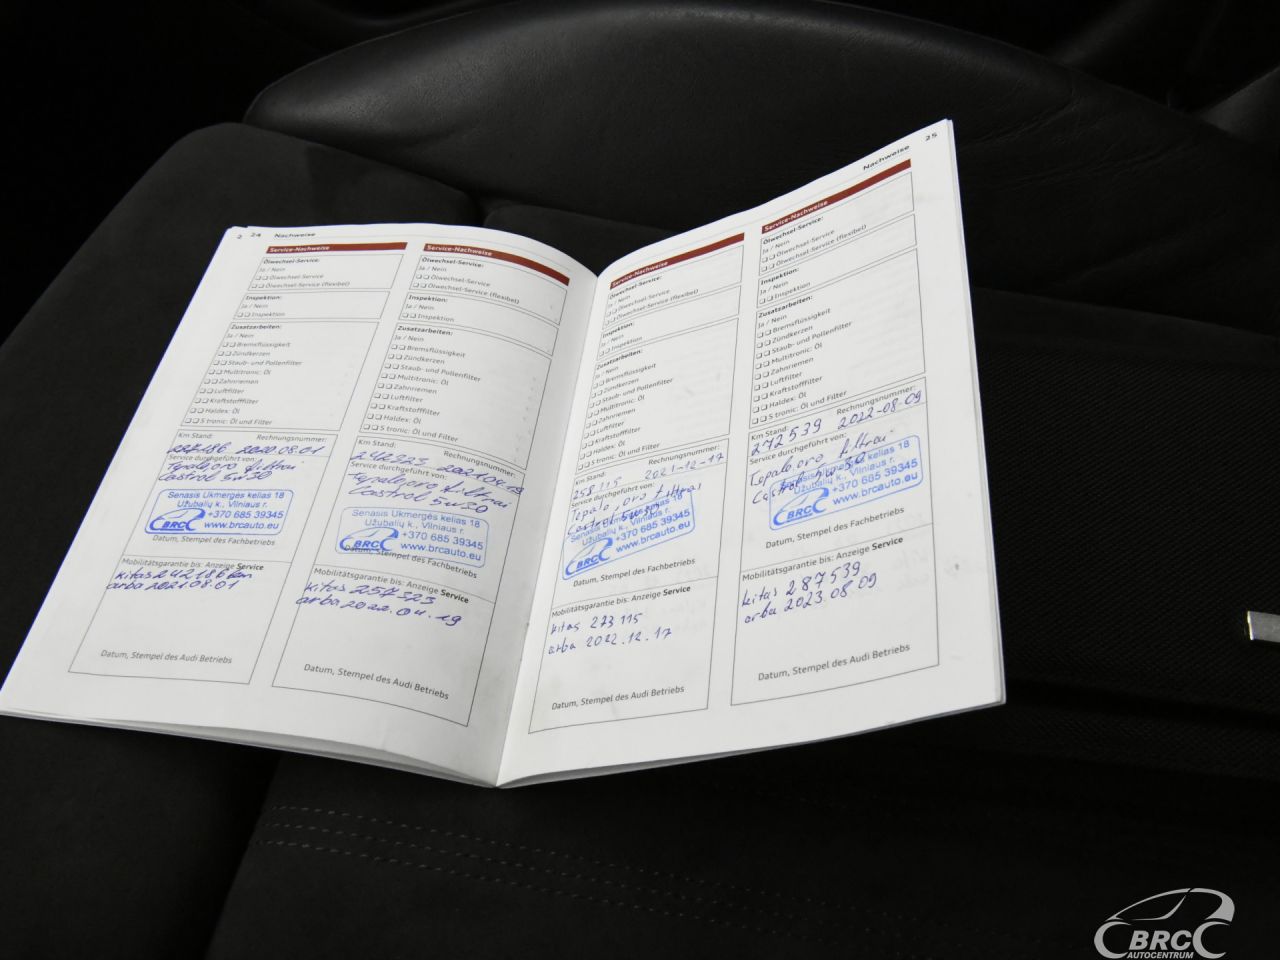 2 24 Nachweise
Service-Nachweise
Ölwechsel-Service:
Ja / Nein
Ölwechsel-Service
Ölwechsel-Service (flexibel)
Inspektion:
Ja / Nein
Inspektion
Zusatzarbeiten:
Ja / Nein
Bremsflüssigkeit
Zündkerzen
Staub- und Pollenfilter
Multitronic: Öl
Zahnriemen
Luftfilter
Kraftstofffilter
Haldex: Öl
S tronic: Öl und Filter
Km Stand: Rechnungsnummer:
227186 2020.08.01
Service durchgeführt von:
Tepalo, oro filtrai
Castrol 5w30
Senasis Ukmergės kelias 18
Užubalių k., Vilniaus r.
+370 685 39345
BRC www.brcauto.eu
Datum, Stempel des Fachbetriebs
Mobilitätsgarantie bis: Anzeige Service
kitas 242186 km
arba 2021.08.01
Datum, Stempel des Audi Betriebs
Service-Nachweise
Ölwechsel-Service:
Ja / Nein
Ölwechsel-Service
Ölwechsel-Service (flexibel)
Inspektion:
Ja / Nein
Inspektion
Zusatzarbeiten:
Ja / Nein
Bremsflüssigkeit
Zündkerzen
Staub- und Pollenfilter
Multitronic: Öl
Zahnriemen
Luftfilter
Kraftstofffilter
Haldex: Öl
S tronic: Öl und Filter
Km Stand: Rechnungsnummer:
242323 2021.04.19
Service durchgeführt von:
Tepalo, oro filtrai
Castrol 5w30
Senasis Ukmergės kelias 18
Užubalių k., Vilniaus r.
+370 685 39345
BRC www.brcauto.eu
Datum, Stempel des Fachbetriebs
Mobilitätsgarantie bis: Anzeige Service
kitas 257323
arba 2022.04.19
Datum, Stempel des Audi Betriebs
Service-Nachweise
Ölwechsel-Service:
Ja / Nein
Ölwechsel-Service
Ölwechsel-Service (flexibel)
Inspektion:
Ja / Nein
Inspektion
Zusatzarbeiten:
Ja / Nein
Bremsflüssigkeit
Zündkerzen
Staub- und Pollenfilter
Multitronic: Öl
Zahnriemen
Luftfilter
Kraftstofffilter
Haldex: Öl
S tronic: Öl und Filter
Km Stand: Rechnungsnummer:
258115 2021-12-17
Service durchgeführt von:
Tepalo, oro filtrai
Castrol 5w30
Senasis Ukmergės kelias 18
Užubalių k., Vilniaus r.
+370 685 39345
BRC www.brcauto.eu
Datum, Stempel des Fachbetriebs
Mobilitätsgarantie bis: Anzeige Service
kitas 273115
arba 2022.12.17
Datum, Stempel des Audi Betriebs
Nachweise 25
Service-Nachweise
Ölwechsel-Service:
Ja / Nein
Ölwechsel-Service
Ölwechsel-Service (flexibel)
Inspektion:
Ja / Nein
Inspektion
Zusatzarbeiten:
Ja / Nein
Bremsflüssigkeit
Zündkerzen
Staub- und Pollenfilter
Multitronic: Öl
Zahnriemen
Luftfilter
Kraftstofffilter
Haldex: Öl
S tronic: Öl und Filter
Km Stand: Rechnungsnummer:
272539 2022-08-09
Service durchgeführt von:
Tepalo, oro filtrai
Castrol 5w30
Senasis Ukmergės kelias 18
Užubalių k., Vilniaus r.
+370 685 39345
BRC www.brcauto.eu
Datum, Stempel des Fachbetriebs
Mobilitätsgarantie bis: Anzeige Service
kitas 287539
arba 2023.08.09
Datum, Stempel des Audi Betriebs
BRC
AUTOCENTRUM